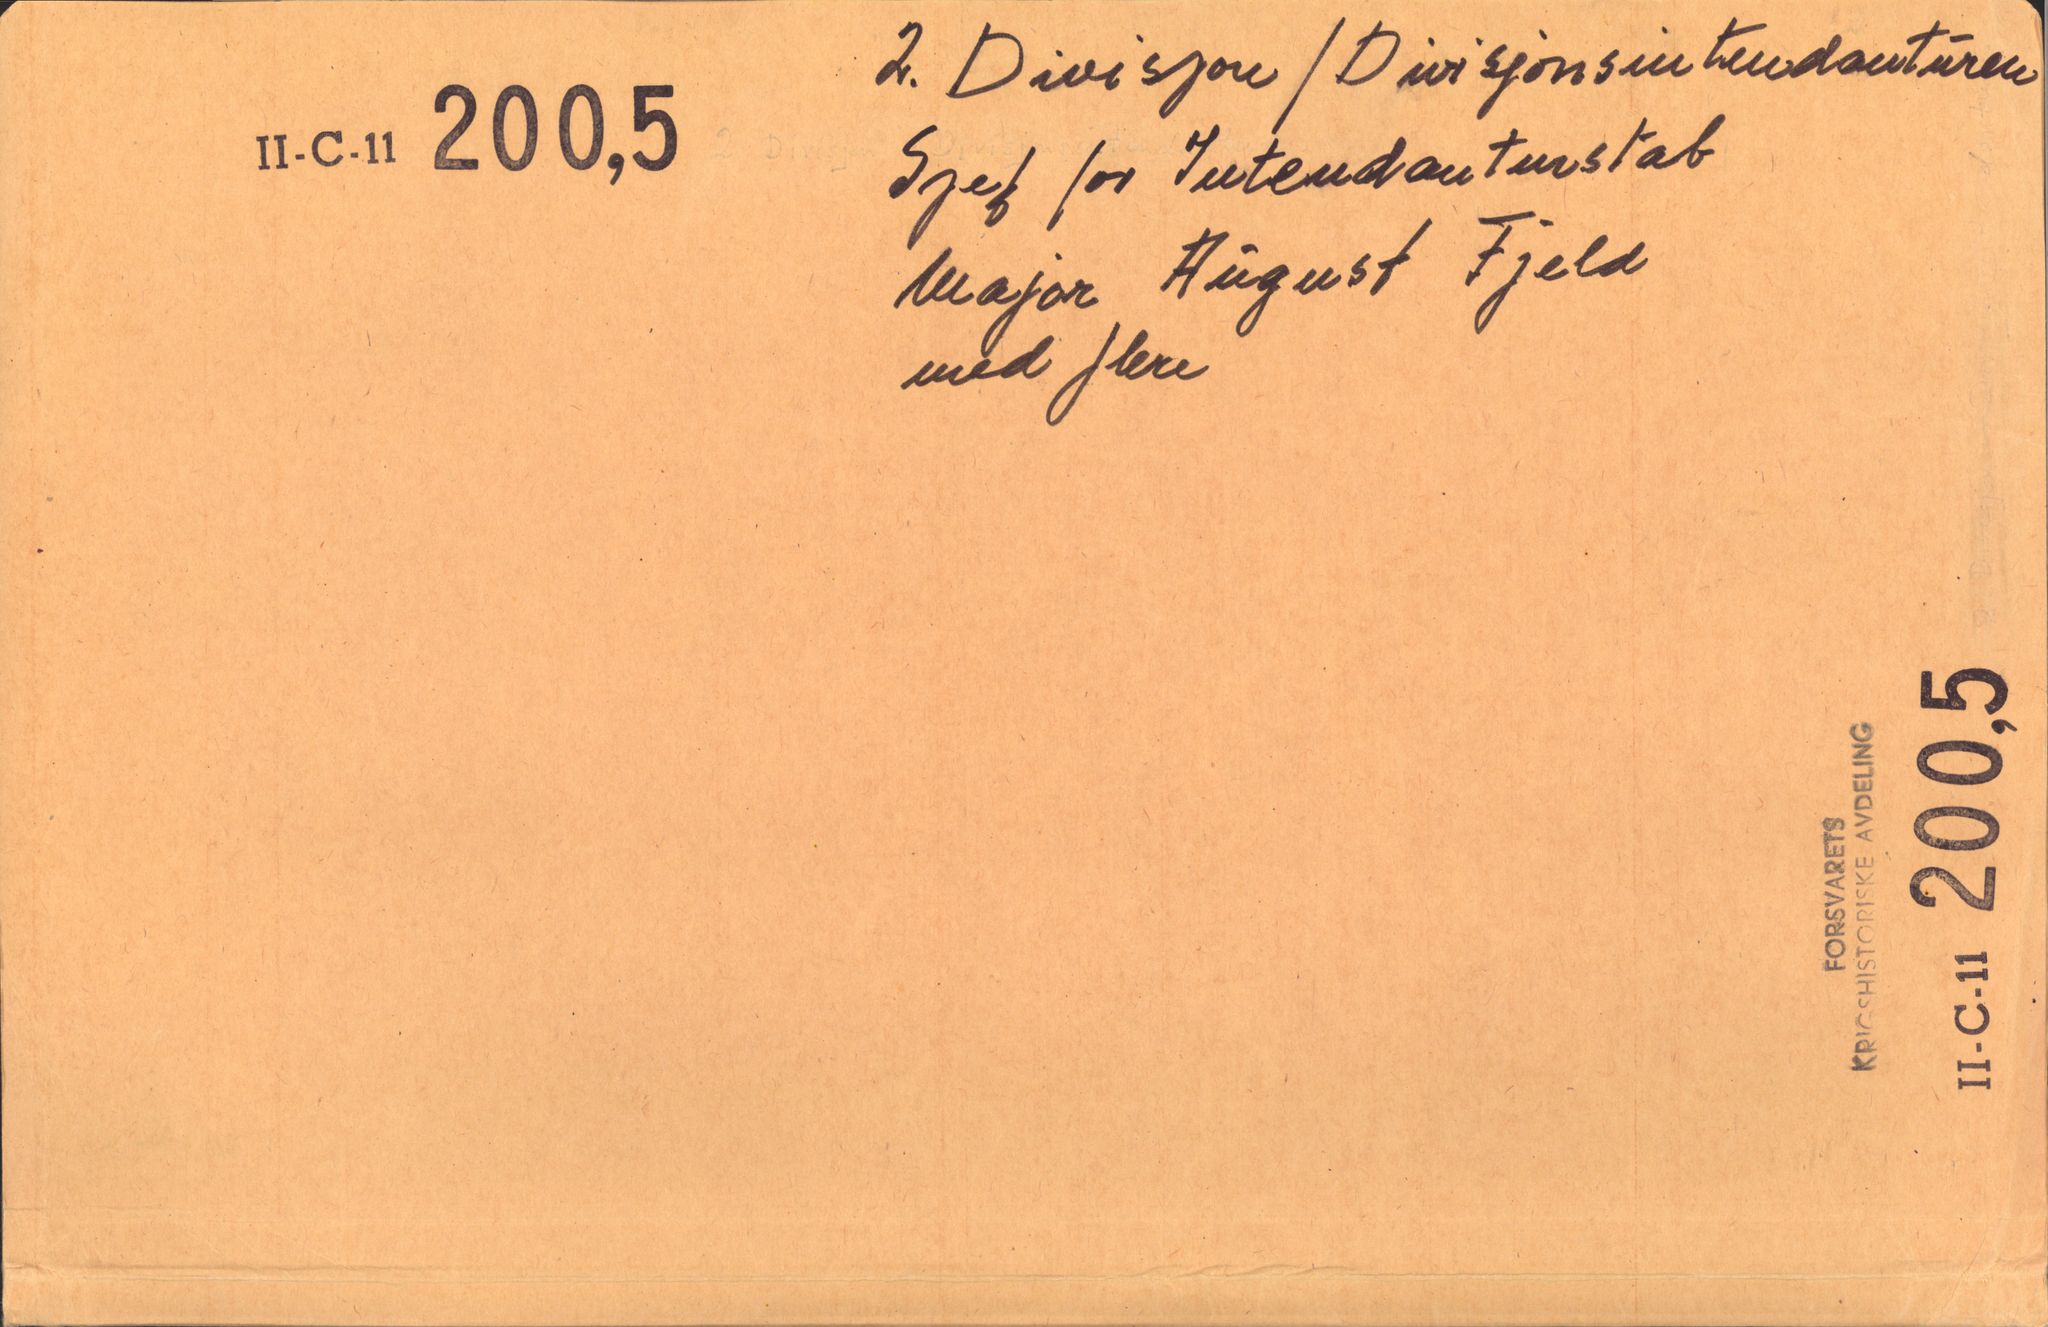 II-C-11 200,5
2. Divisjon / Divisjonsintendanturen
Sjef for Intendanturstab
Major August Fjeld
med flere
FORSVARETS
KRIGSHISTORISKE AVDELING
II-C-11 200,5